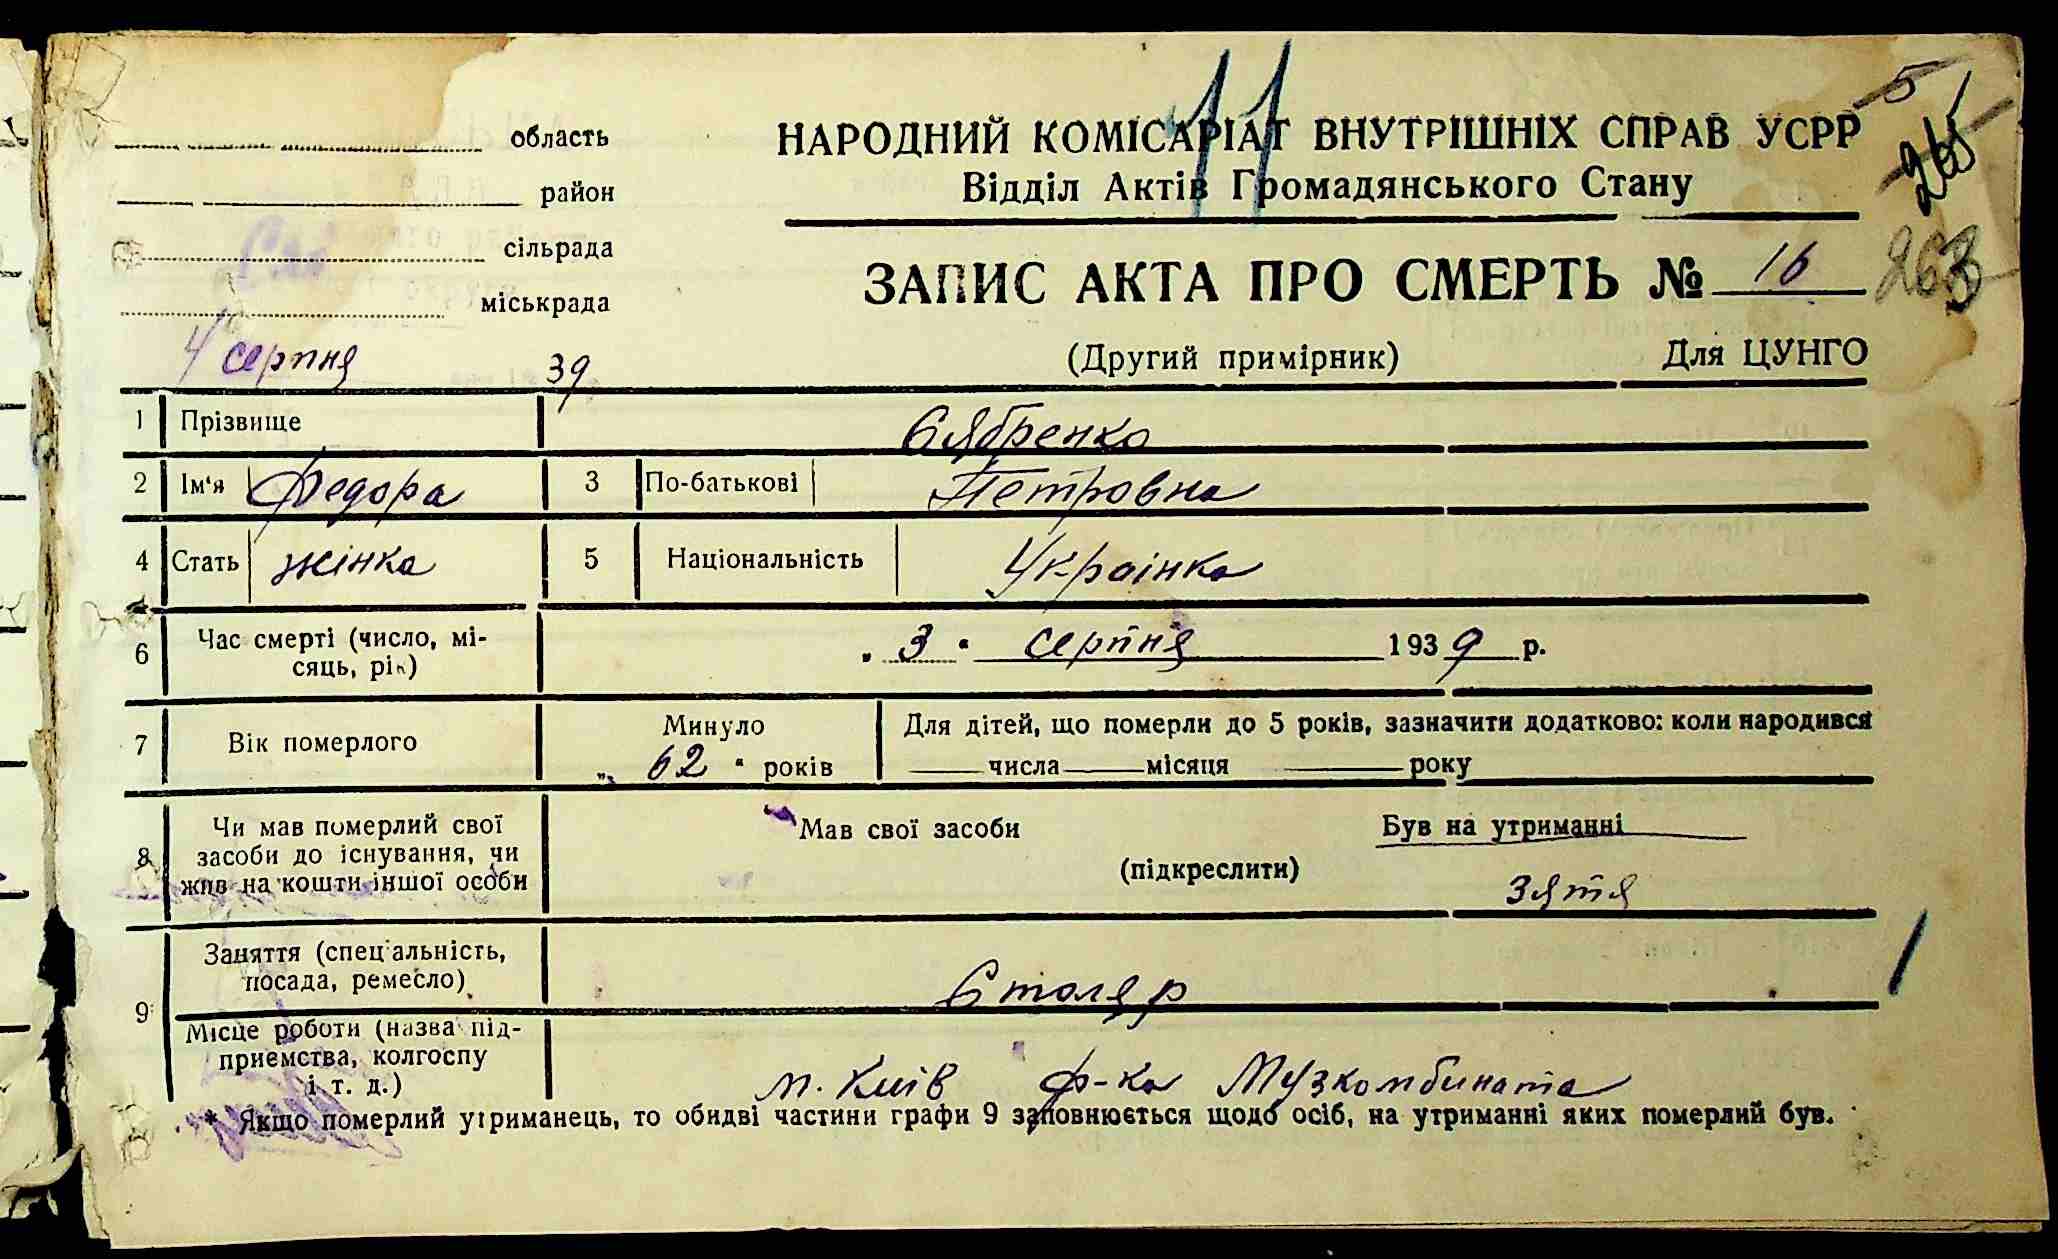 область
район
сільрада
міськрада
4 серпня 39
11
НАРОДНИЙ КОМІСАРІАТ ВНУТРІШНІХ СПРАВ УСРР
Відділ Актів Громадянського Стану
ЗАПИС АКТА ПРО СМЕРТЬ № 16
(Другий примірник) Для ЦУНГО
5
265
263
1 Прізвище Сябренко
2 Ім'я Федора 3 По-батькові Петровна
4 Стать жінка 5 Національність Українка
6 Час смерті (число, мі-
сяць, рік) „3“ серпня 1939 р.
7 Вік померлого Минуло
„62“ років
Для дітей, що померли до 5 років, зазначити додатково: коли народився
числа місяця року
8 Чи мав померлий свої
засоби до існування, чи
жив на кошти іншої особи
Мав свої засоби Був на утриманні
(підкреслити)
Зятя
9 Заняття (спеціальність,
посада, ремесло) Столяр
Місце роботи (назва під-
приємства, колгоспу
і т. д.) м. Київ ф-ка Музкомбината
* Якщо померлий утриманець, то обидві частини графи 9 заповнюється щодо осіб, на утриманні яких померлий був.